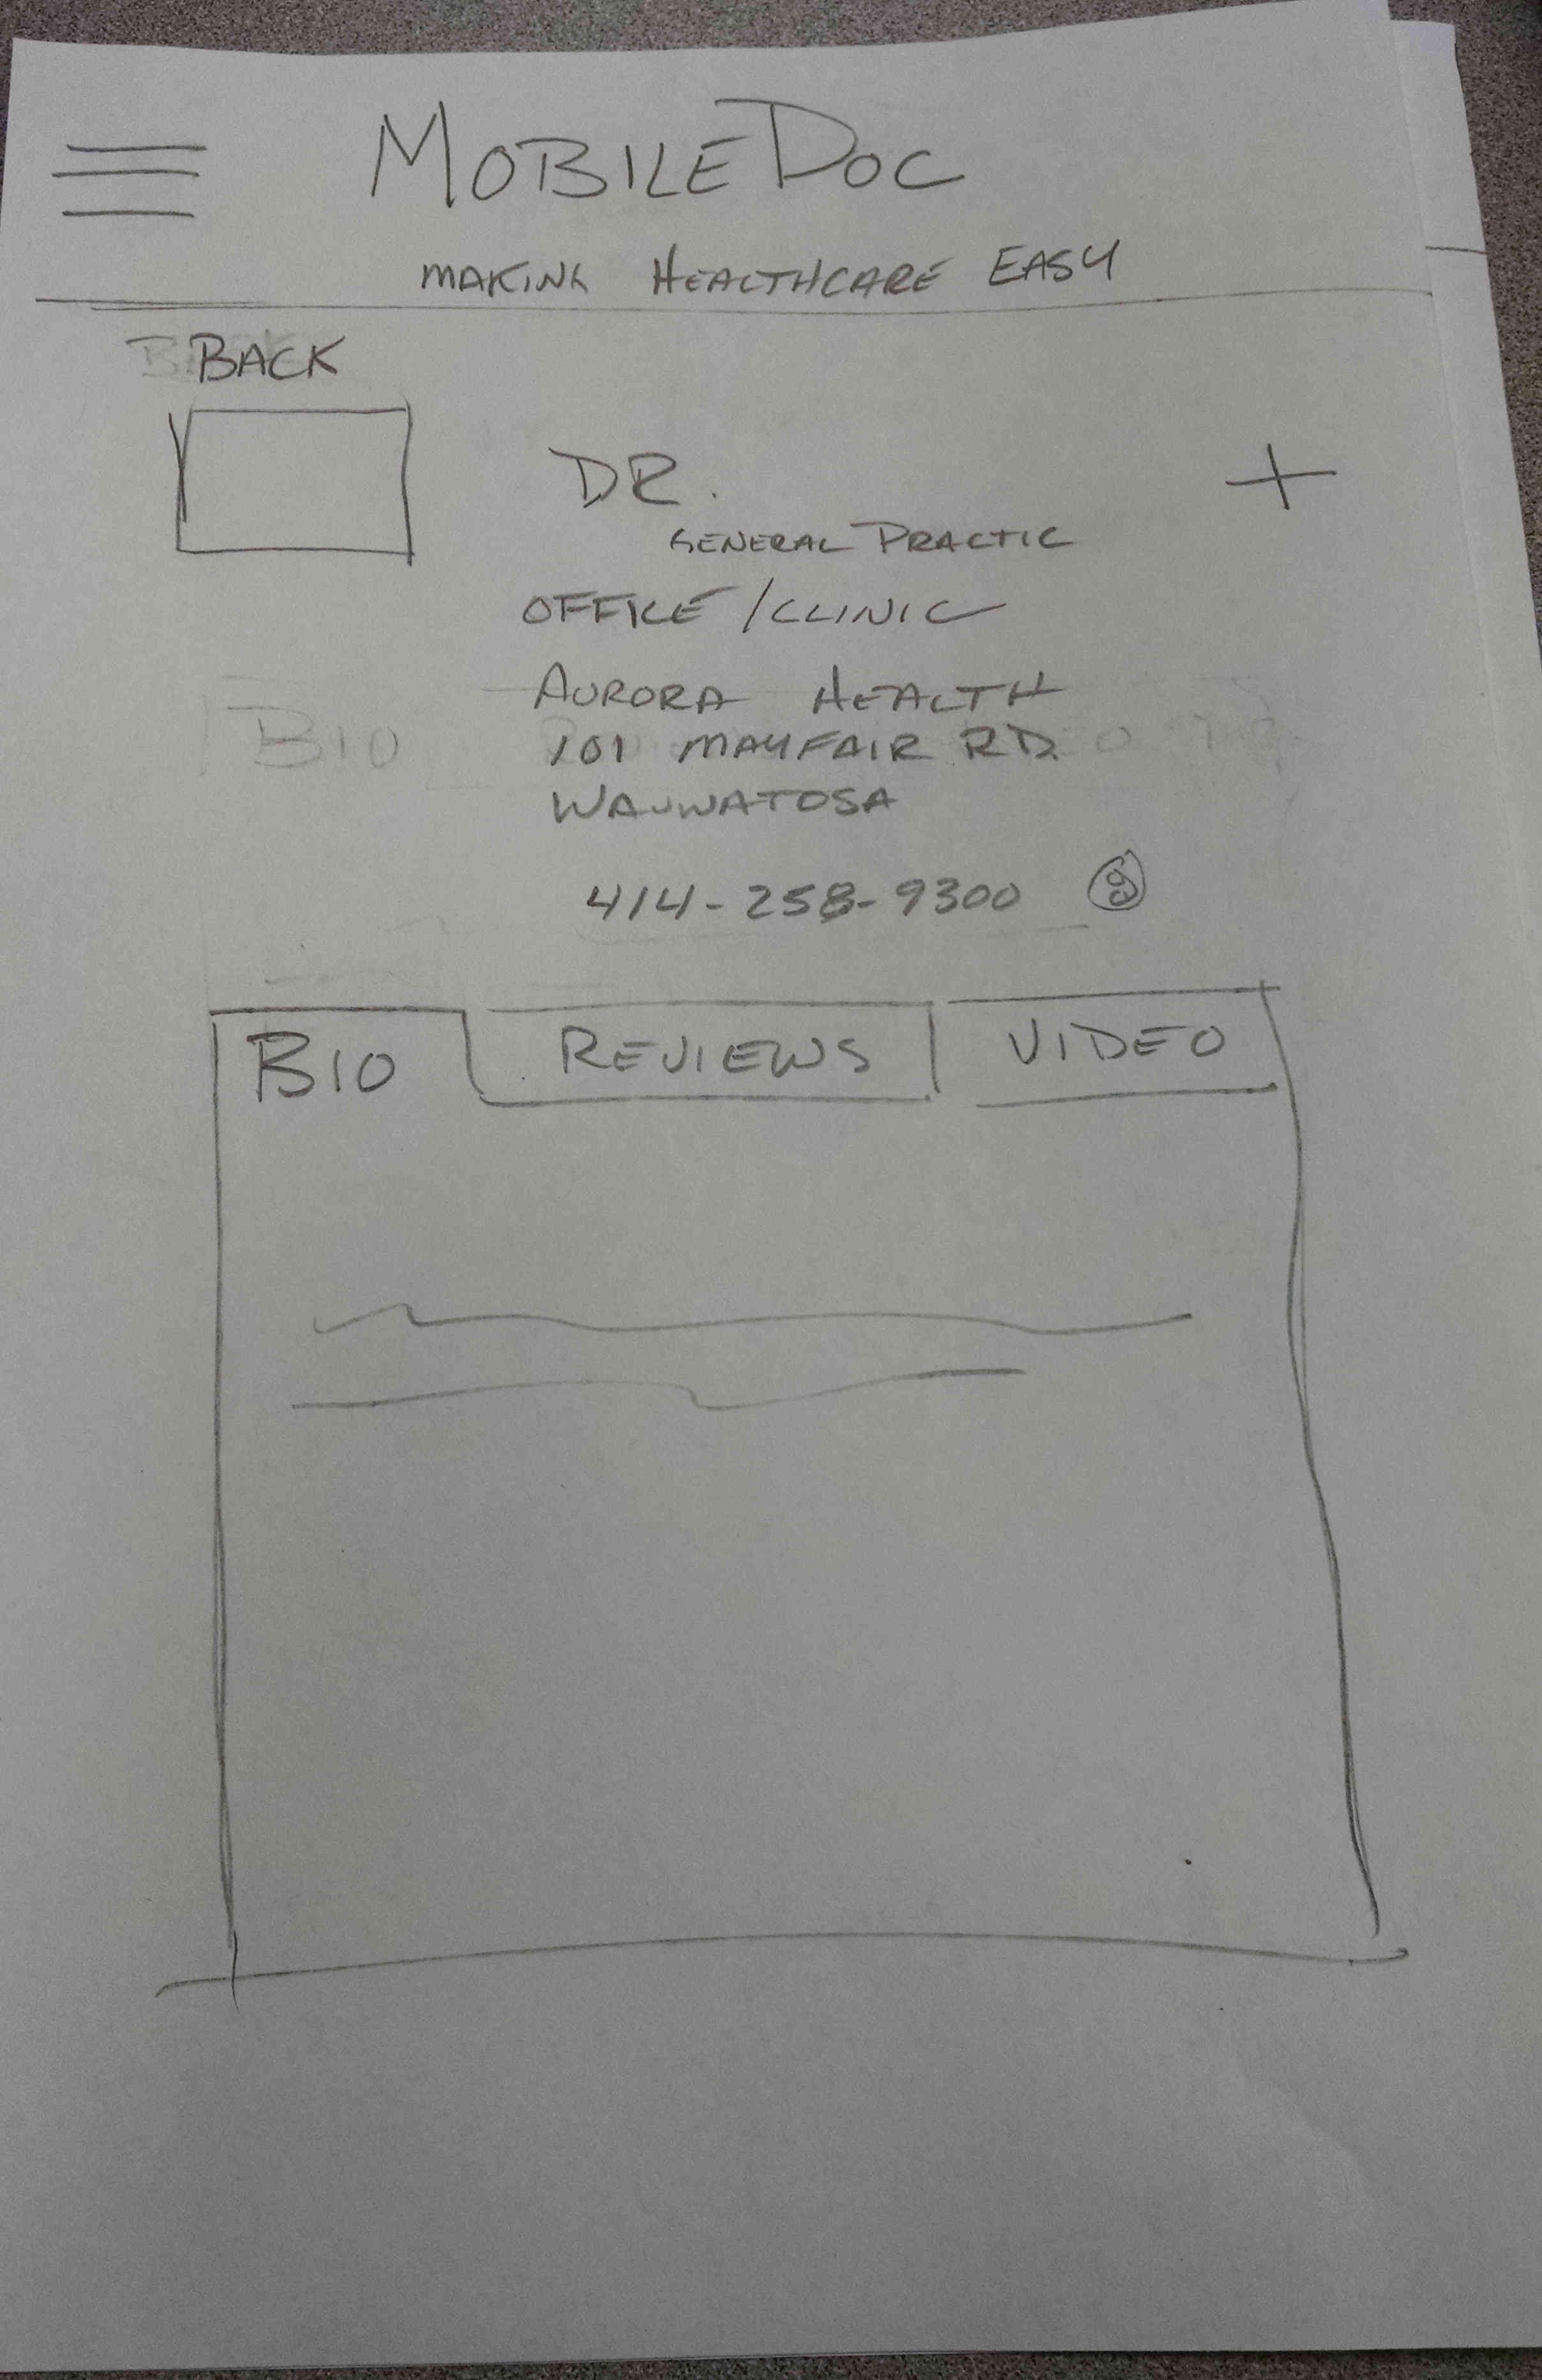 MOBILEDOC
MAKING HEALTHCARE EASY
BACK
DR.
GENERAL PRACTIC
OFFICE/CLINIC
AURORA HEALTH
101 MAYFAIR RD.
WAUWATOSA
BIO
414-258-9300
BIO REVIEWS VIDEO